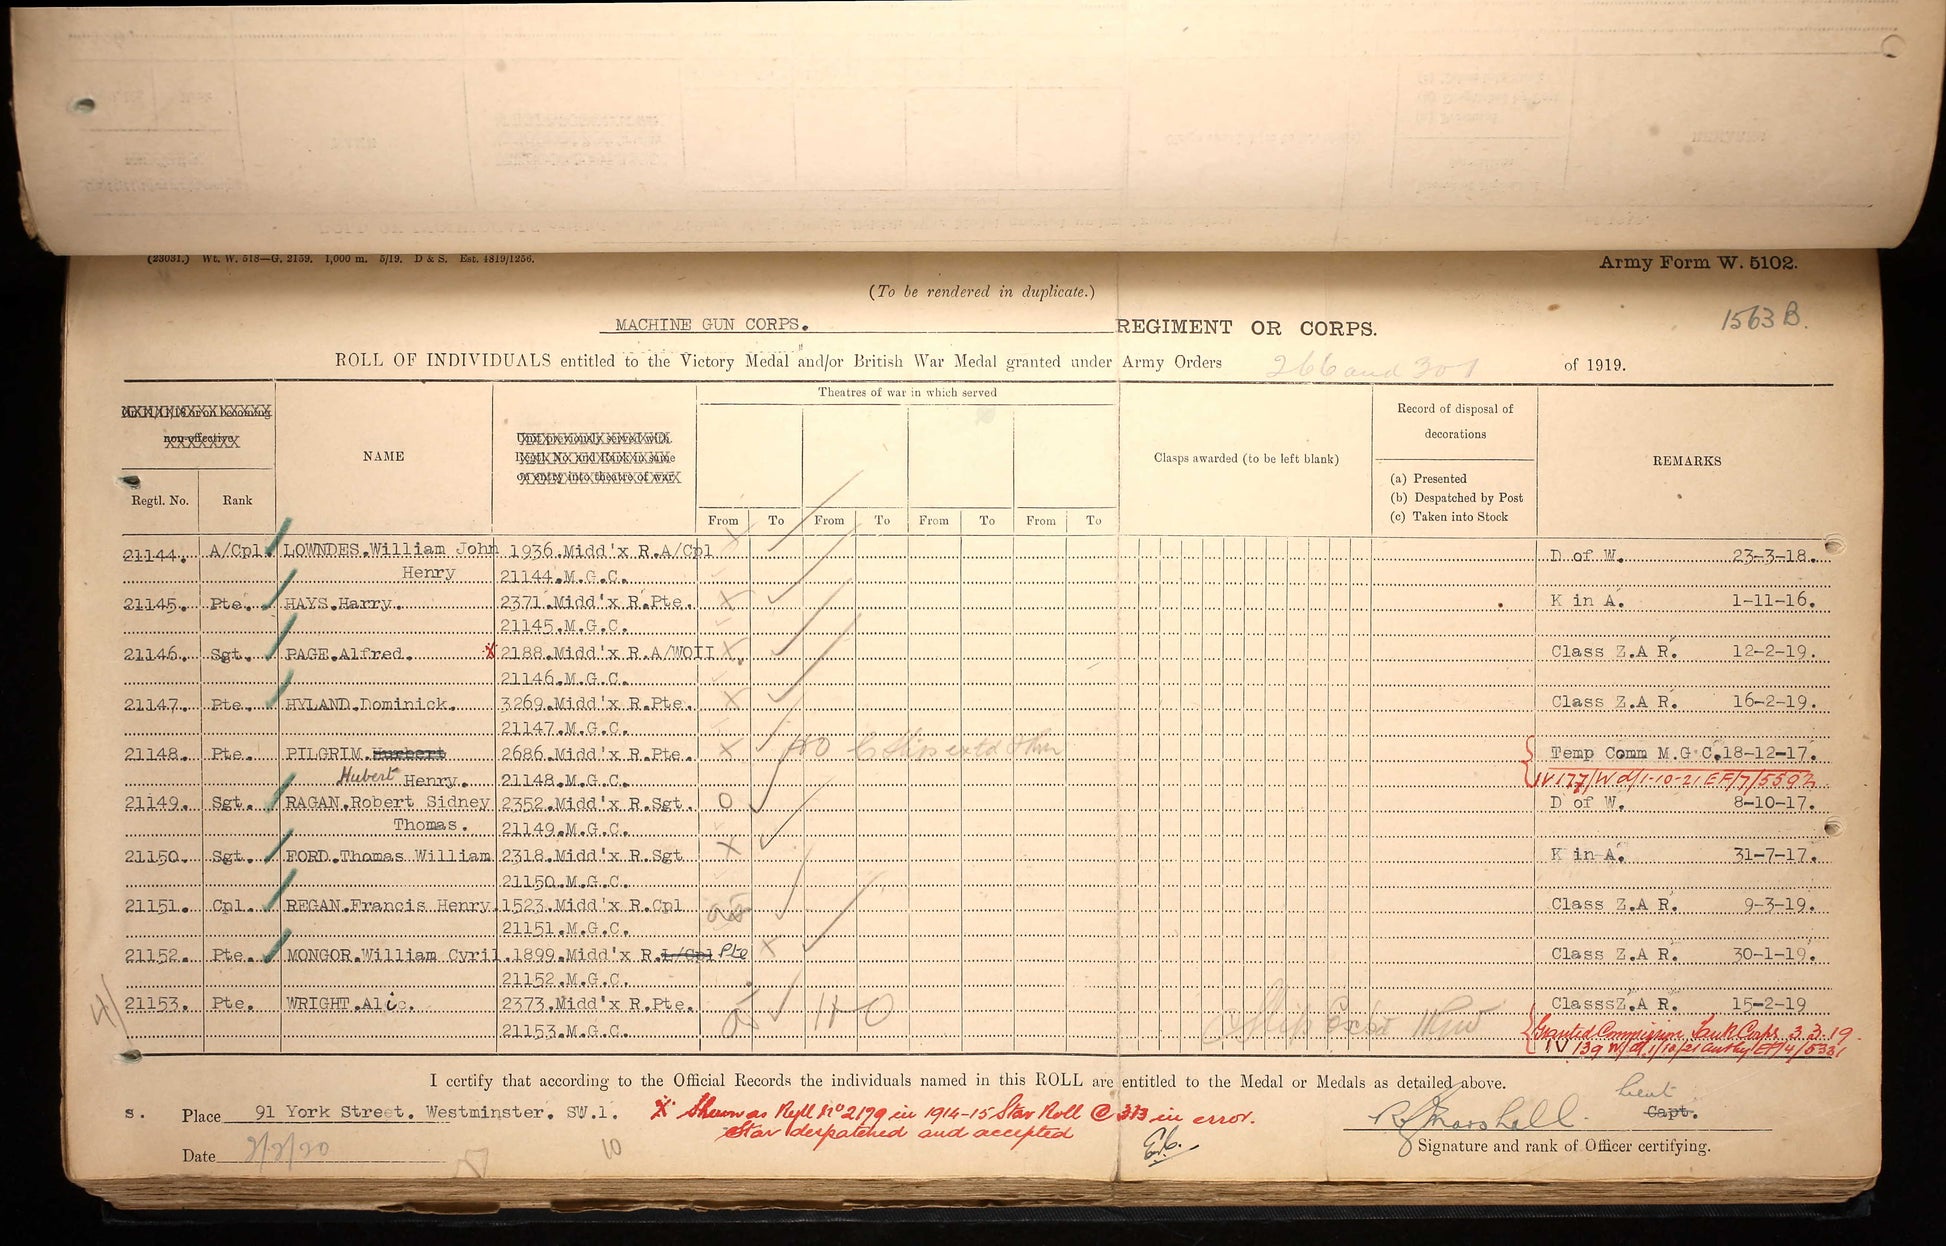 (23031.) Wt. W. 518—G. 2159. 1,000 m. 5/19. D & S. Est. 4819/1256.
Army Form W. 5102.
(To be rendered in duplicate.)
1563 B.
MACHINE GUN CORPS. REGIMENT OR CORPS.
ROLL OF INDIVIDUALS entitled to the Victory Medal and/or British War Medal granted under Army Orders 266 and 301 of 1919.
Theatres of war in which served
non-effective
Unit previously served with.
Regtl. No. and Rank in same
on entry into theatre of war.
NAME
Clasps awarded (to be left blank)
Record of disposal of
decorations
(a) Presented
(b) Despatched by Post
(c) Taken into Stock
REMARKS
Regtl. No. Rank
From To From To From To From To
21144. A/Cpl. LOWNDES.William John 1936.Midd'x R.A/Cpl D of W. 23-3-18.
Henry 21144.M.G.C.
21145. Pte. HAYS.Harry. 2371.Midd'x R.Pte. X K in A. 1-11-16.
21145.M.G.C.
21146. Sgt. PAGE.Alfred. X 2188.Midd'x R.A/WOII X Class Z.A R. 12-2-19.
21146.M.G.C.
21147. Pte. HYLAND.Dominick. 3269.Midd'x R.Pte. X Class Z.A R. 16-2-19.
21147.M.G.C.
21148. Pte. PILGRIM.Hurbert 2686.Midd'x R.Pte. X HO Temp Comm M.G.C.18-12-17.
Hubert Henry. 21148.M.G.C. IV 177/W d/1-10-21 EF/7/5592
21149. Sgt. RAGAN.Robert Sidney 2352.Midd'x R.Sgt. O D of W. 8-10-17.
Thomas. 21149.M.G.C.
21150. Sgt. FORD.Thomas William 2318.Midd'x R.Sgt X K in A. 31-7-17.
21150.M.G.C.
21151. Cpl. REGAN.Francis Henry. 1523.Midd'x R.Cpl Class Z.A R. 9-3-19.
21151.M.G.C.
21152. Pte. MONGOR.William Cyril. 1899.Midd'x R.L/Cpl Pte X Class Z.A R. 30-1-19.
21152.M.G.C.
21153. Pte. WRIGHT.Alic. 2373.Midd'x R.Pte. HO ClasssZ.A R. 15-2-19
21153.M.G.C. Granted Commission Tank Corps 3.3.19
IV 139 W/d/1/10/21 Authy EF/4/5331
I certify that according to the Official Records the individuals named in this ROLL are entitled to the Medal or Medals as detailed above.
s. Place 91 York Street. Westminster. SW.1. X Shewn as Regtl No 2179 in 1914-15 Star Roll @ 313 in error.
Star despatched and accepted
E.C.
R Marshall. Lieut Capt.
Date 2/2/20
10
Signature and rank of Officer certifying.